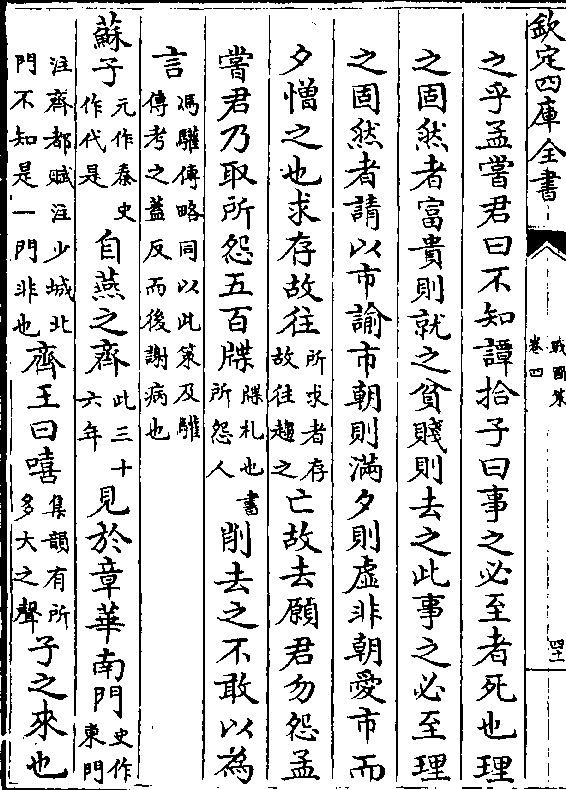 欽定四庫全書
戰國策
卷四
之乎孟嘗君曰不知譚拾子曰事之必至者死也理
之固然者富貴則就之貧賤則去之此事之必至理
之固然者請以市諭市朝則滿夕則虛非朝愛市而
夕憎之也求存故往所求者存故往趨之亡故去願君勿怨孟
嘗君乃取所怨五百牒牒札也書所怨人削去之不敢以為
言馮驩傳略同以此策及驩傳考之蓋反而後謝病也
蘇子元作秦史作代是自燕之齊此三十六年見於章華南門史作東門
注齊都賦注少城北門不知是一門非也齊王曰嘻集韻有所多大之聲子之來也